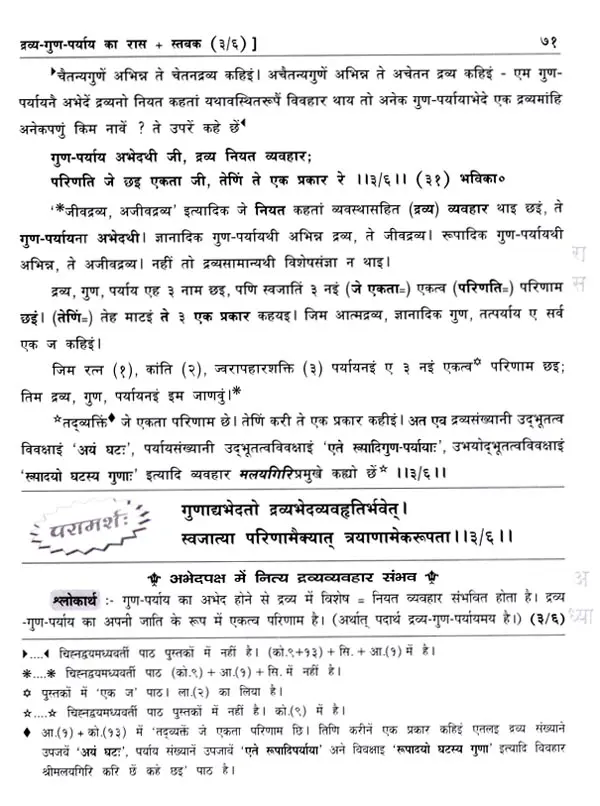 द्रव्य-गुण-पर्याय का रास + स्तबक (३/६) ] ७१
▸चैतन्यगुणें अभिन्न ते चेतनद्रव्य कहिइं। अचैतन्यगुणें अभिन्न ते अचेतन द्रव्य कहिइं - एम गुण-
पर्यायनै अभेदें द्रव्यनो नियत कहतां यथावस्थितरूपैं विवहार थाय तो अनेक गुण-पर्यायाभेदे एक द्रव्यमांहि
अनेकपणुं किम नावें ? ते उपरें कहे छें◂
गुण-पर्याय अभेदथी जी, द्रव्य नियत व्यवहार;
परिणति जे छइ एकता जी, तेणिं ते एक प्रकार रे ।।३/६।। (३१) भविका०
'*जीवद्रव्य, अजीवद्रव्य' इत्यादिक जे नियत कहतां व्यवस्थासहित (द्रव्य) व्यवहार थाइ छइं, ते
गुण-पर्यायना अभेदथी। ज्ञानादिक गुण-पर्यायथी अभिन्न द्रव्य, ते जीवद्रव्य। रूपादिक गुण-पर्यायथी
अभिन्न, ते अजीवद्रव्य। नहीं तो द्रव्यसामान्यथी विशेषसंज्ञा न थाइ।
द्रव्य, गुण, पर्याय एह ३ नाम छइ, पणि स्वजातिं ३ नइं (जे एकता=) एकत्व (परिणति=) परिणाम
छइं। (तेणिं=) तेह माटइं ते ३ एक प्रकार कहयइ। जिम आत्मद्रव्य, ज्ञानादिक गुण, तत्पर्याय ए सर्व
एक ज कहिइं।
जिम रत्न (१), कांति (२), ज्वरापहारशक्ति (३) पर्यायनइं ए ३ नइं एकत्व✡ परिणाम छइ;
तिम द्रव्य, गुण, पर्यायनइं इम जाणवुं।*
☆तद्व्यक्तिं♦ जे एकता परिणाम छे। तेणिं करी ते एक प्रकार कहीइं। अत एव द्रव्यसंख्यानी उद्भूतत्व
विवक्षाइं 'अयं घटः', पर्यायसंख्यानी उद्भूतत्वविवक्षाइं 'एते रूपादिगुण-पर्यायाः', उभयोद्भूतत्वविवक्षाइं
'रूपादयो घटस्य गुणाः' इत्यादि व्यवहार मलयगिरिप्रमुखे कह्यो छें☆ ।।३/६।।
परामर्शः
गुणाद्यभेदतो द्रव्यभेदव्यवहृतिर्भवेत्।
स्वजात्या परिणामैक्यात् त्रयाणामेकरूपता।।३/६।।
अभेदपक्ष में नित्य द्रव्यव्यवहार संभव
श्लोकार्थ :- गुण-पर्याय का अभेद होने से द्रव्य में विशेष = नियत व्यवहार संभवित होता है। द्रव्य
-गुण-पर्याय का अपनी जाति के रूप में एकत्व परिणाम है। (अर्थात् पदार्थ द्रव्य-गुण-पर्यायमय है।) (३/६)
▸....◂ चिह्नद्वयमध्यवर्ती पाठ पुस्तकों में नहीं है। (को.९+१३) + सि. + आ.(१) में है।
*....* चिह्नद्वयमध्यवर्ती पाठ (को.९) + आ.(१) + सि. में नहीं है।
✡ पुस्तकों में 'एक ज' पाठ। ला.(२) का लिया है।
☆....☆ चिह्नद्वयमध्यवर्ती पाठ पुस्तकों में नहीं है। को.(९) में है।
♦ आ.(१) + को.(१३) में 'तद्व्यक्तें जे एकता परिणाम छि। तिणि करीनें एक प्रकार कहिइं एतलइ द्रव्य संख्याने
उपजवें 'अयं घटः', पर्याय संख्यानें उपजावें 'एते रूपादिपर्याया' अने विवक्षाइ 'रूपादयो घटस्य गुणा' इत्यादि विवहार
श्रीमलयगिरि करि छें कहे छइ' पाठ है।